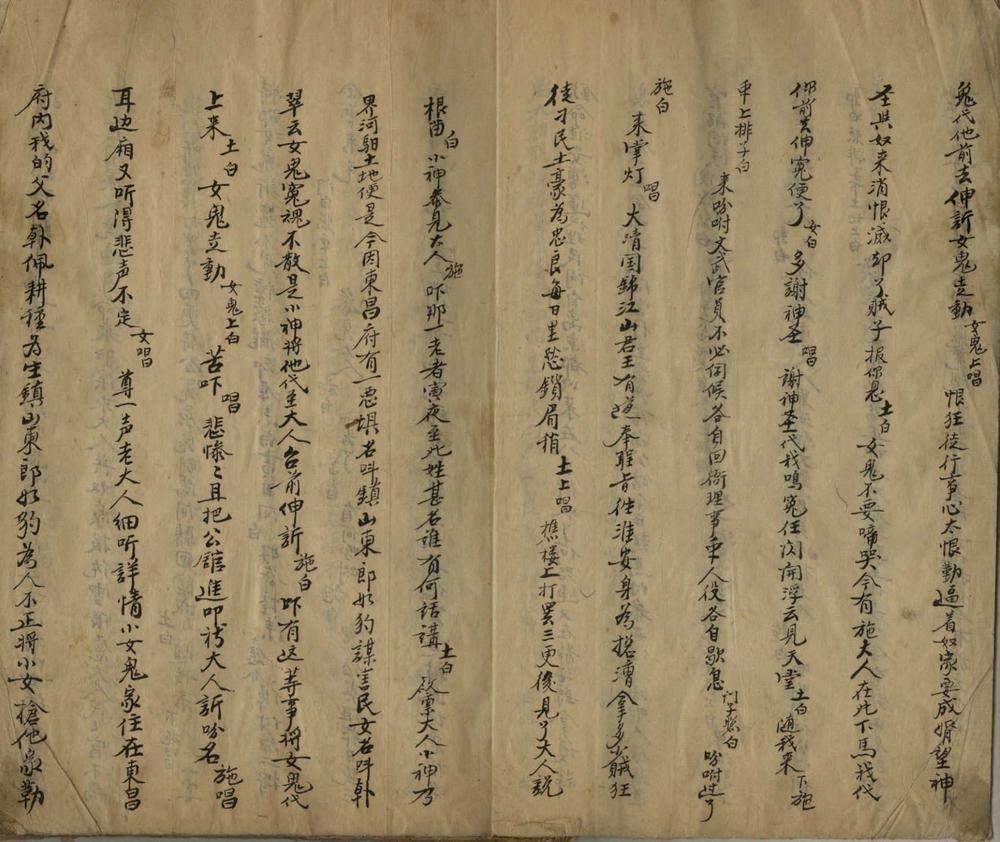 鬼代他前去伸訴女鬼走動女鬼上唱恨狂徒行事心太恨勤逼着奴家要成婿望神
圣與奴来消恨滅却了賊子报你恩土白女鬼不要啼哭今有施大人在此下馬我代
你前去伸冤便了女白多謝神圣唱謝神圣代我鳴冤任閃開浮云見天堂土白随我来下施
申上排子白来吩咐文武官員不必伺候各自回衙理事申人役各自歇息 吩咐过了
施白来掌灯唱大清国錦江山君王有道奉聖旨往淮安身為揔漕拿多少賊狂
徒刁民土豪為忠良每日里愁鎖眉梢土上唱樵楼上打罢三更後見了大人説
根酉白小神叅見大人施吓那一老者寅夜至此姓甚名誰有何話講土白啟禀大人小神乃
界河駔土地便是今因東昌府有一悪棍名叫鎮山東郎如豹謀害民女名叫韩
翠云女鬼冤魂不散是小神将他代至大人台前伸訴施白吓有这䓁事將女鬼代
上来土白女鬼走動女鬼上白苦吓唱悲慘〻且把公舘進叩禱大人訴吩名施唱
耳边廂又听得悲声不定女唱尊一声老大人細听詳情小女鬼家住在東昌
府内我的父名韩佩耕種為生鎮山東郎如豹為人不正將小女搶他家勒